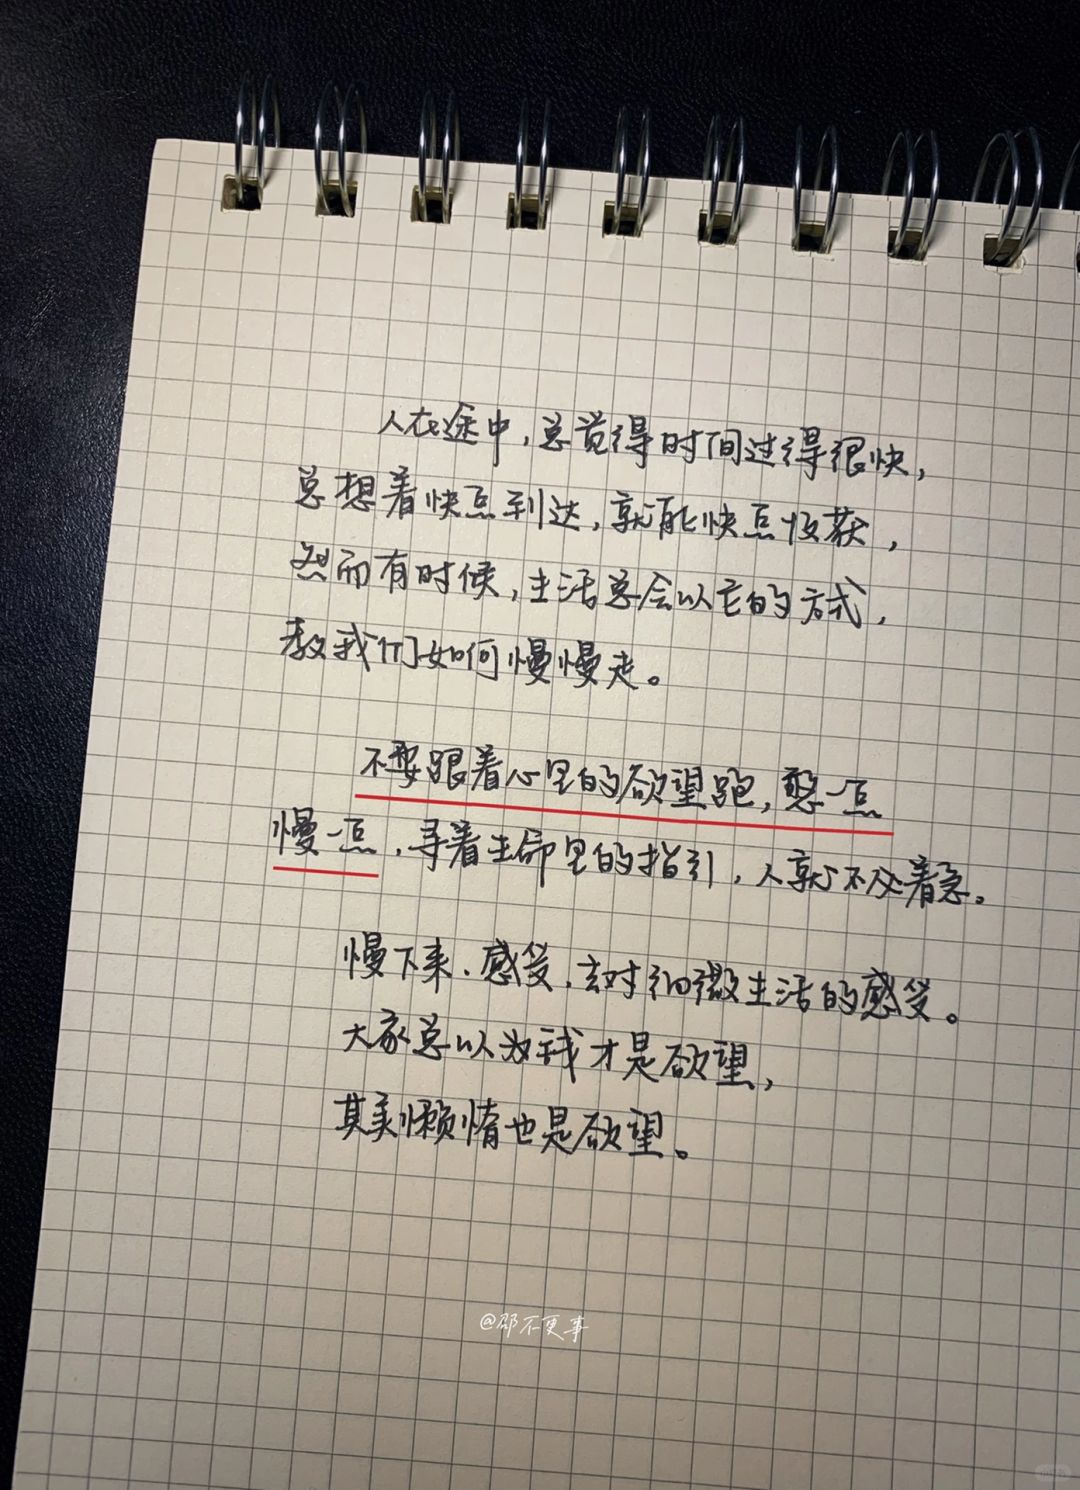 人在途中，总觉得时间过得很快，
总想着快点到达，就能快点收获，
然而有时候，生活总会以它的方式，
教我们如何慢慢走。
不要跟着心里的欲望跑，憨一点
慢一点，寻着生命里的指引，人就不必着急。
慢下来，感受，去对细微生活的感受。
大家总以为我才是欲望，
其实懒惰也是欲望。
@邵不更事